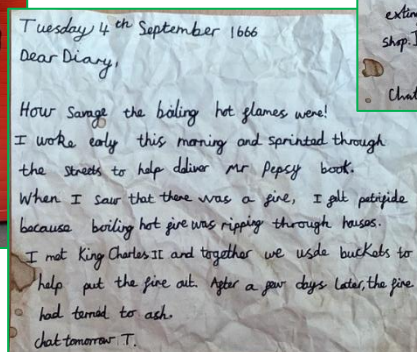 Tuesday 4th September 1666
Dear Diary,
How Savage the boiling hot flames were!
I woke early this morning and sprinted through
the streets to help deliver Mr Pepsy book.
When I saw that there was a fire, I felt petrifide
because boiling hot fire was ripping through houses.
I met King Charles II and together we usde buckets to
help put the fire out. After a few days later, the fire
had terned to ash.
chat tomorrow T.
extin
shop.
Chat